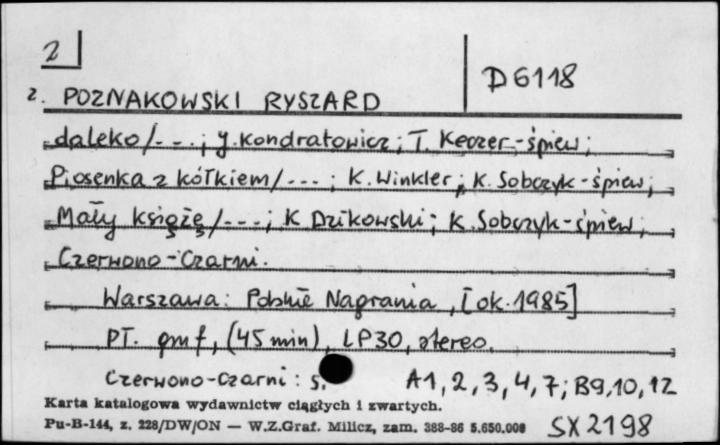 2
D 6118
2. POZNAKOWSKI RYSZARD
daleko/---; J. Kondratowicz; T. Keczer-śpiew;
Piosenka z kółkiem/---; K. Winkler; K. Sobczyk-śpiew;
Mały książę/---; K Dzikowski; K. Sobczyk-śpiew,
Czerwono-Czarni.
Warszawa: Polskie Nagrania, [ok. 1985]
PŁ. gmf, (45 min), LP30, stereo.
Czerwono-Czarni: s. A1, 2, 3, 4, 7; B9, 10, 12
Karta katalogowa wydawnictw ciągłych i zwartych.
Pu-B-144, z. 228/DW/ON — W.Z.Graf. Milicz, zam. 388-86 5.650.000
SX 2198